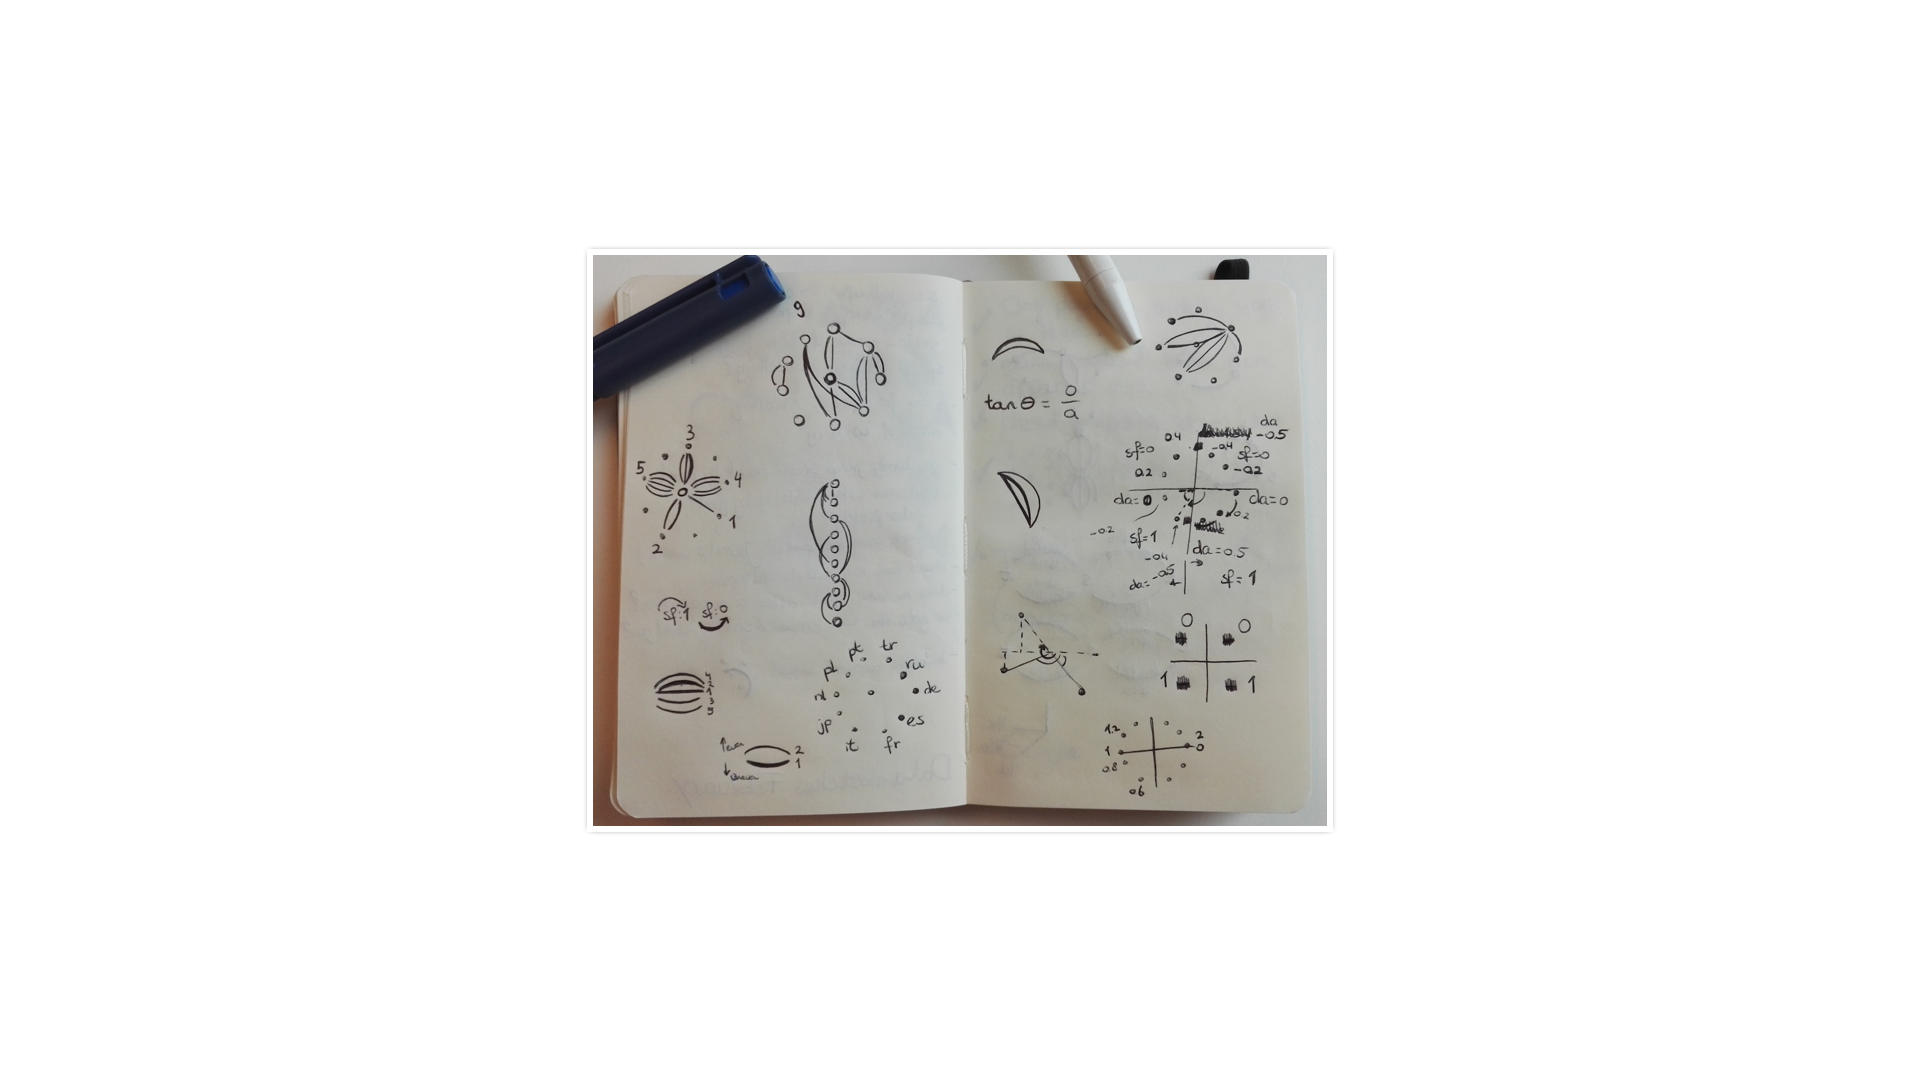 9
3
5
4
1
2
sf=1 sf=0
4
2
1
3
5
2
1
pt tr
pl ru
nl de
jp es
it fr
tanθ = o/a
da
0.4 -0.5
-0.4
sf=0 sf=0
0.2 -0.2
da=0 da=0
-0.2
sf=1
-0.4 da=0.5
da=-0.5 sf=1
0 0
1 1
1.2 2
1 0
0.8
0.6